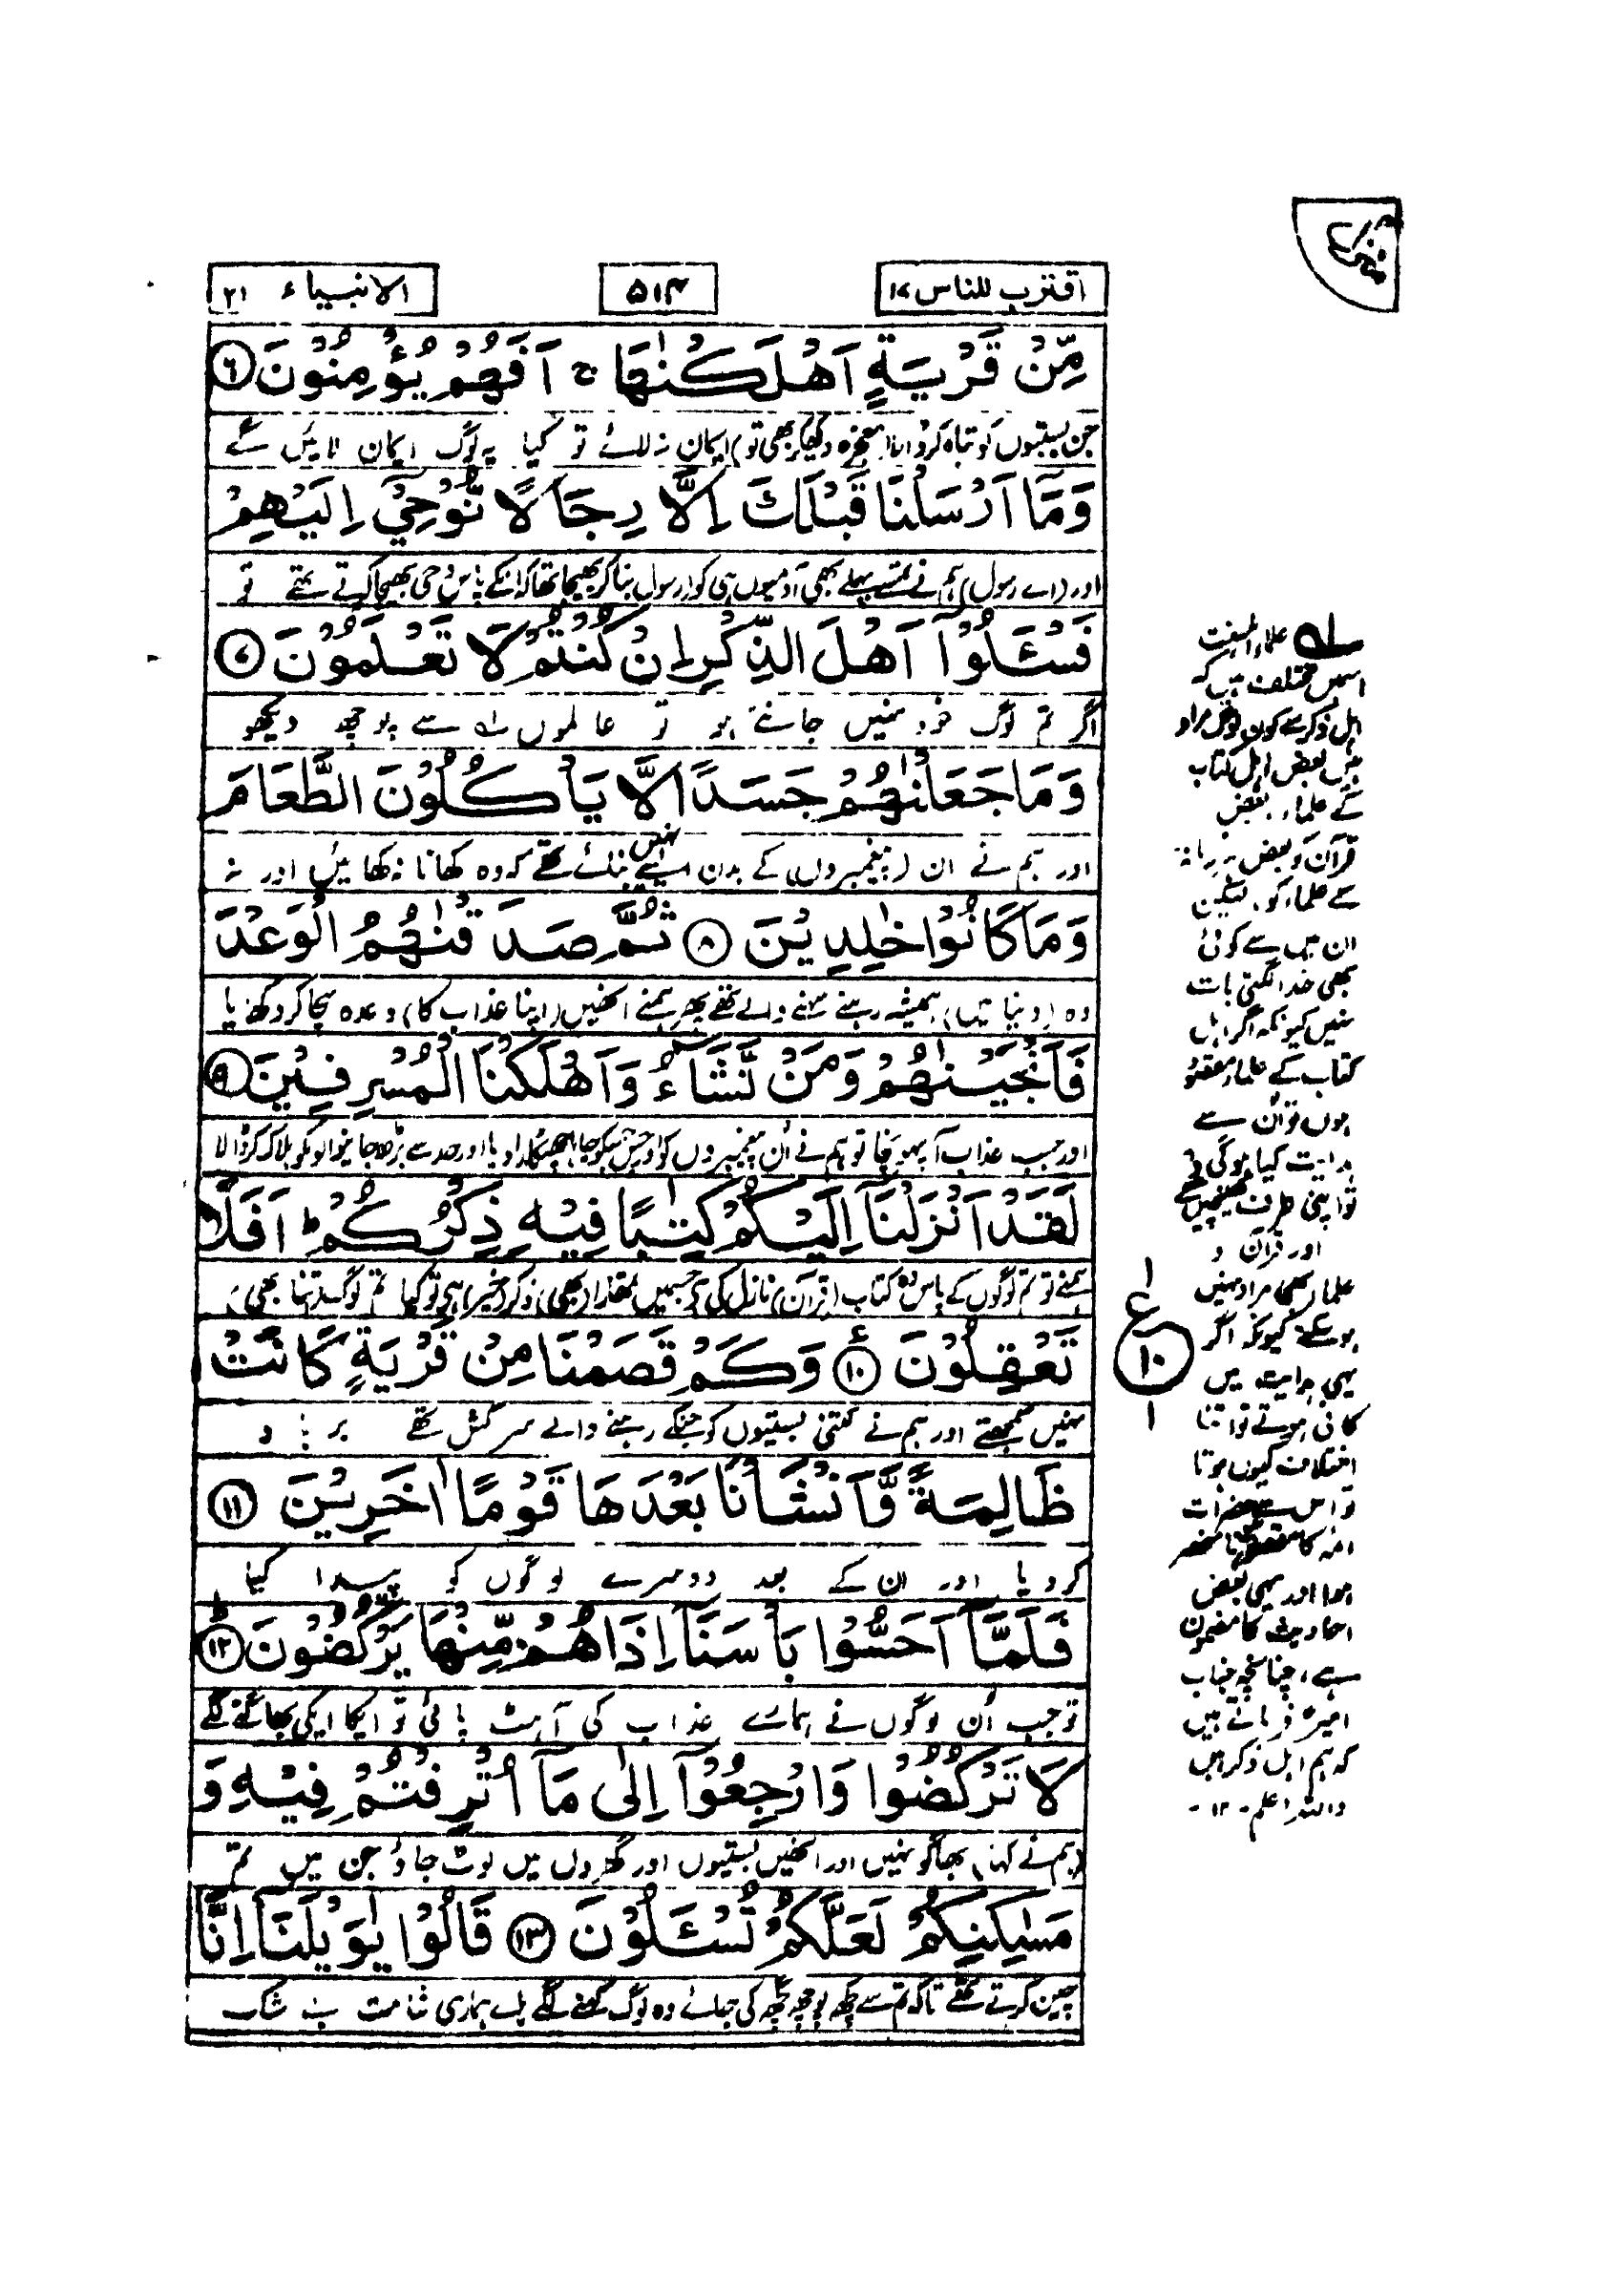 اقترب للناس ۱۷
۵۱۴
الانبیاء ۲۱
مِّنْ قَرْيَةٍ اَهْلَكْنٰهَا ۚ اَفَهُمْ يُؤْمِنُوْنَ ﴿٦﴾
جن بستیوں کو تباہ کر ڈالا (معجزہ دیکھکر بھی تو) ایمان نہ لائے تو کیا یہ لوگ ایمان لائیں گے
وَمَاۤ اَرْسَلْنَا قَبْلَكَ اِلَّا رِجَالًا نُّوْحِيْۤ اِلَيْهِمْ
اور (اے رسول) ہم نے تمسے پہلے بھی آدمیوں ہی کو (رسول بنا کر بھیجا تھا کہ انکے پاس وحی بھیجا کرتے تھے تو
فَسْـَٔلُوْۤا اَهْلَ الذِّكْرِ اِنْ كُنْتُمْ لَا تَعْلَمُوْنَ ﴿٧﴾
اگر تم لوگ خود نہیں جانتے ہو تو عالموں سے پوچھ دیکھو
وَمَا جَعَلْنٰهُمْ جَسَدًا لَّا يَاْكُلُوْنَ الطَّعَامَ
اور ہم نے ان (پیغمبروں) کے بدن ایسے نہیں بنائے تھے کہ وہ کھانا نہ کھائیں اور نہ
وَمَا كَانُوْا خٰلِدِيْنَ ﴿٨﴾ ثُمَّ صَدَقْنٰهُمُ الْوَعْدَ
وہ (دنیا میں) ہمیشہ رہنے سہنے والے تھے پھر ہمنے انھیں (اپنا عذاب کا) وعدہ سچا کر دکھایا
فَاَنْجَيْنٰهُمْ وَمَنْ نَّشَآءُ وَاَهْلَكْنَا الْمُسْرِفِيْنَ ﴿٩﴾
اور جب عذاب آ پہونچا تو ہم نے اُن پیغمبروں کو اور جس کو چاہا چھٹکارا دیا اور حد سے بڑھ جانیوالوں کو ہلاک کر ڈالا
لَقَدْ اَنْزَلْنَاۤ اِلَيْكُمْ كِتٰبًا فِيْهِ ذِكْرُكُمْ ؕ اَفَلَا
ہمنے تو تم لوگوں کے پاس وہ کتاب (قرآن) نازل کی ہے جسمیں تمھارا (بھی) ذکر (خیر) ہے تو کیا تم لوگ اتنا بھی
تَعْقِلُوْنَ ﴿١٠﴾ وَكَمْ قَصَمْنَا مِنْ قَرْيَةٍ كَانَتْ
نہیں سمجھتے اور ہم نے کتنی بستیوں کو جنکے رہنے والے سرکش تھے برباد
ظَالِمَةً وَّاَنْشَاْنَا بَعْدَهَا قَوْمًا اٰخَرِيْنَ ﴿١١﴾
کر دیا اور ان کے بعد دوسرے لوگوں کو پیدا کیا
فَلَمَّاۤ اَحَسُّوْا بَاْسَنَاۤ اِذَا هُمْ مِّنْهَا يَرْكُضُوْنَ ﴿١٢﴾
تو جب اُن لوگوں نے ہمارے عذاب کی آہٹ پائی تو ایکا ایکی بھاگنے لگے
لَا تَرْكُضُوْا وَارْجِعُوْۤا اِلٰى مَاۤ اُتْرِفْتُمْ فِيْهِ وَ
(ہم نے کہا) بھاگو نہیں اور انھیں بستیوں اور گھروں میں لوٹ جاؤ جن میں تم
مَسٰكِنِكُمْ لَعَلَّكُمْ تُسْـَٔلُوْنَ ﴿١٣﴾ قَالُوْا يٰوَيْلَنَاۤ اِنَّا
چین کرتے تھے تاکہ تم سے کچھ پوچھ گچھ کی جائے وہ لوگ کہنے لگے ہائے ہماری شامت بے شک
علماء اہلسنت
اسمیں مختلف ہیں کہ
اہل ذکر سے کون لوگ مراد
ہیں بعض اہل کتاب
کے علماء، بعض
قرآن و بعض ہر زمانہ
کے علماء کو، لیکن
ان میں سے کوئی
بھی خدا لگتی بات
نہیں کیونکہ اگر اہل
کتاب کے علماء مقصود
ہوں تو ان سے
ہدایت کیا ہوگی
تو اپنی طرف کھینچیں گے
اور قرآن و
علماء بھی مراد نہیں
ہو سکتے کیونکہ اگر
یہی ہدایت میں
کافی ہوتے تو اتنا
اختلاف کیوں ہوتا
تو اس سے حضرات
ائمہ کا مقصود ہونا
ہوا اور یہی بعض
احادیث کا مضمون
ہے، چنانچہ جناب
امیر فرماتے ہیں
کہ ہم اہل ذکر ہیں
واللہ اعلم ۔ ۱۲ ۔
ع
۱۰
۱